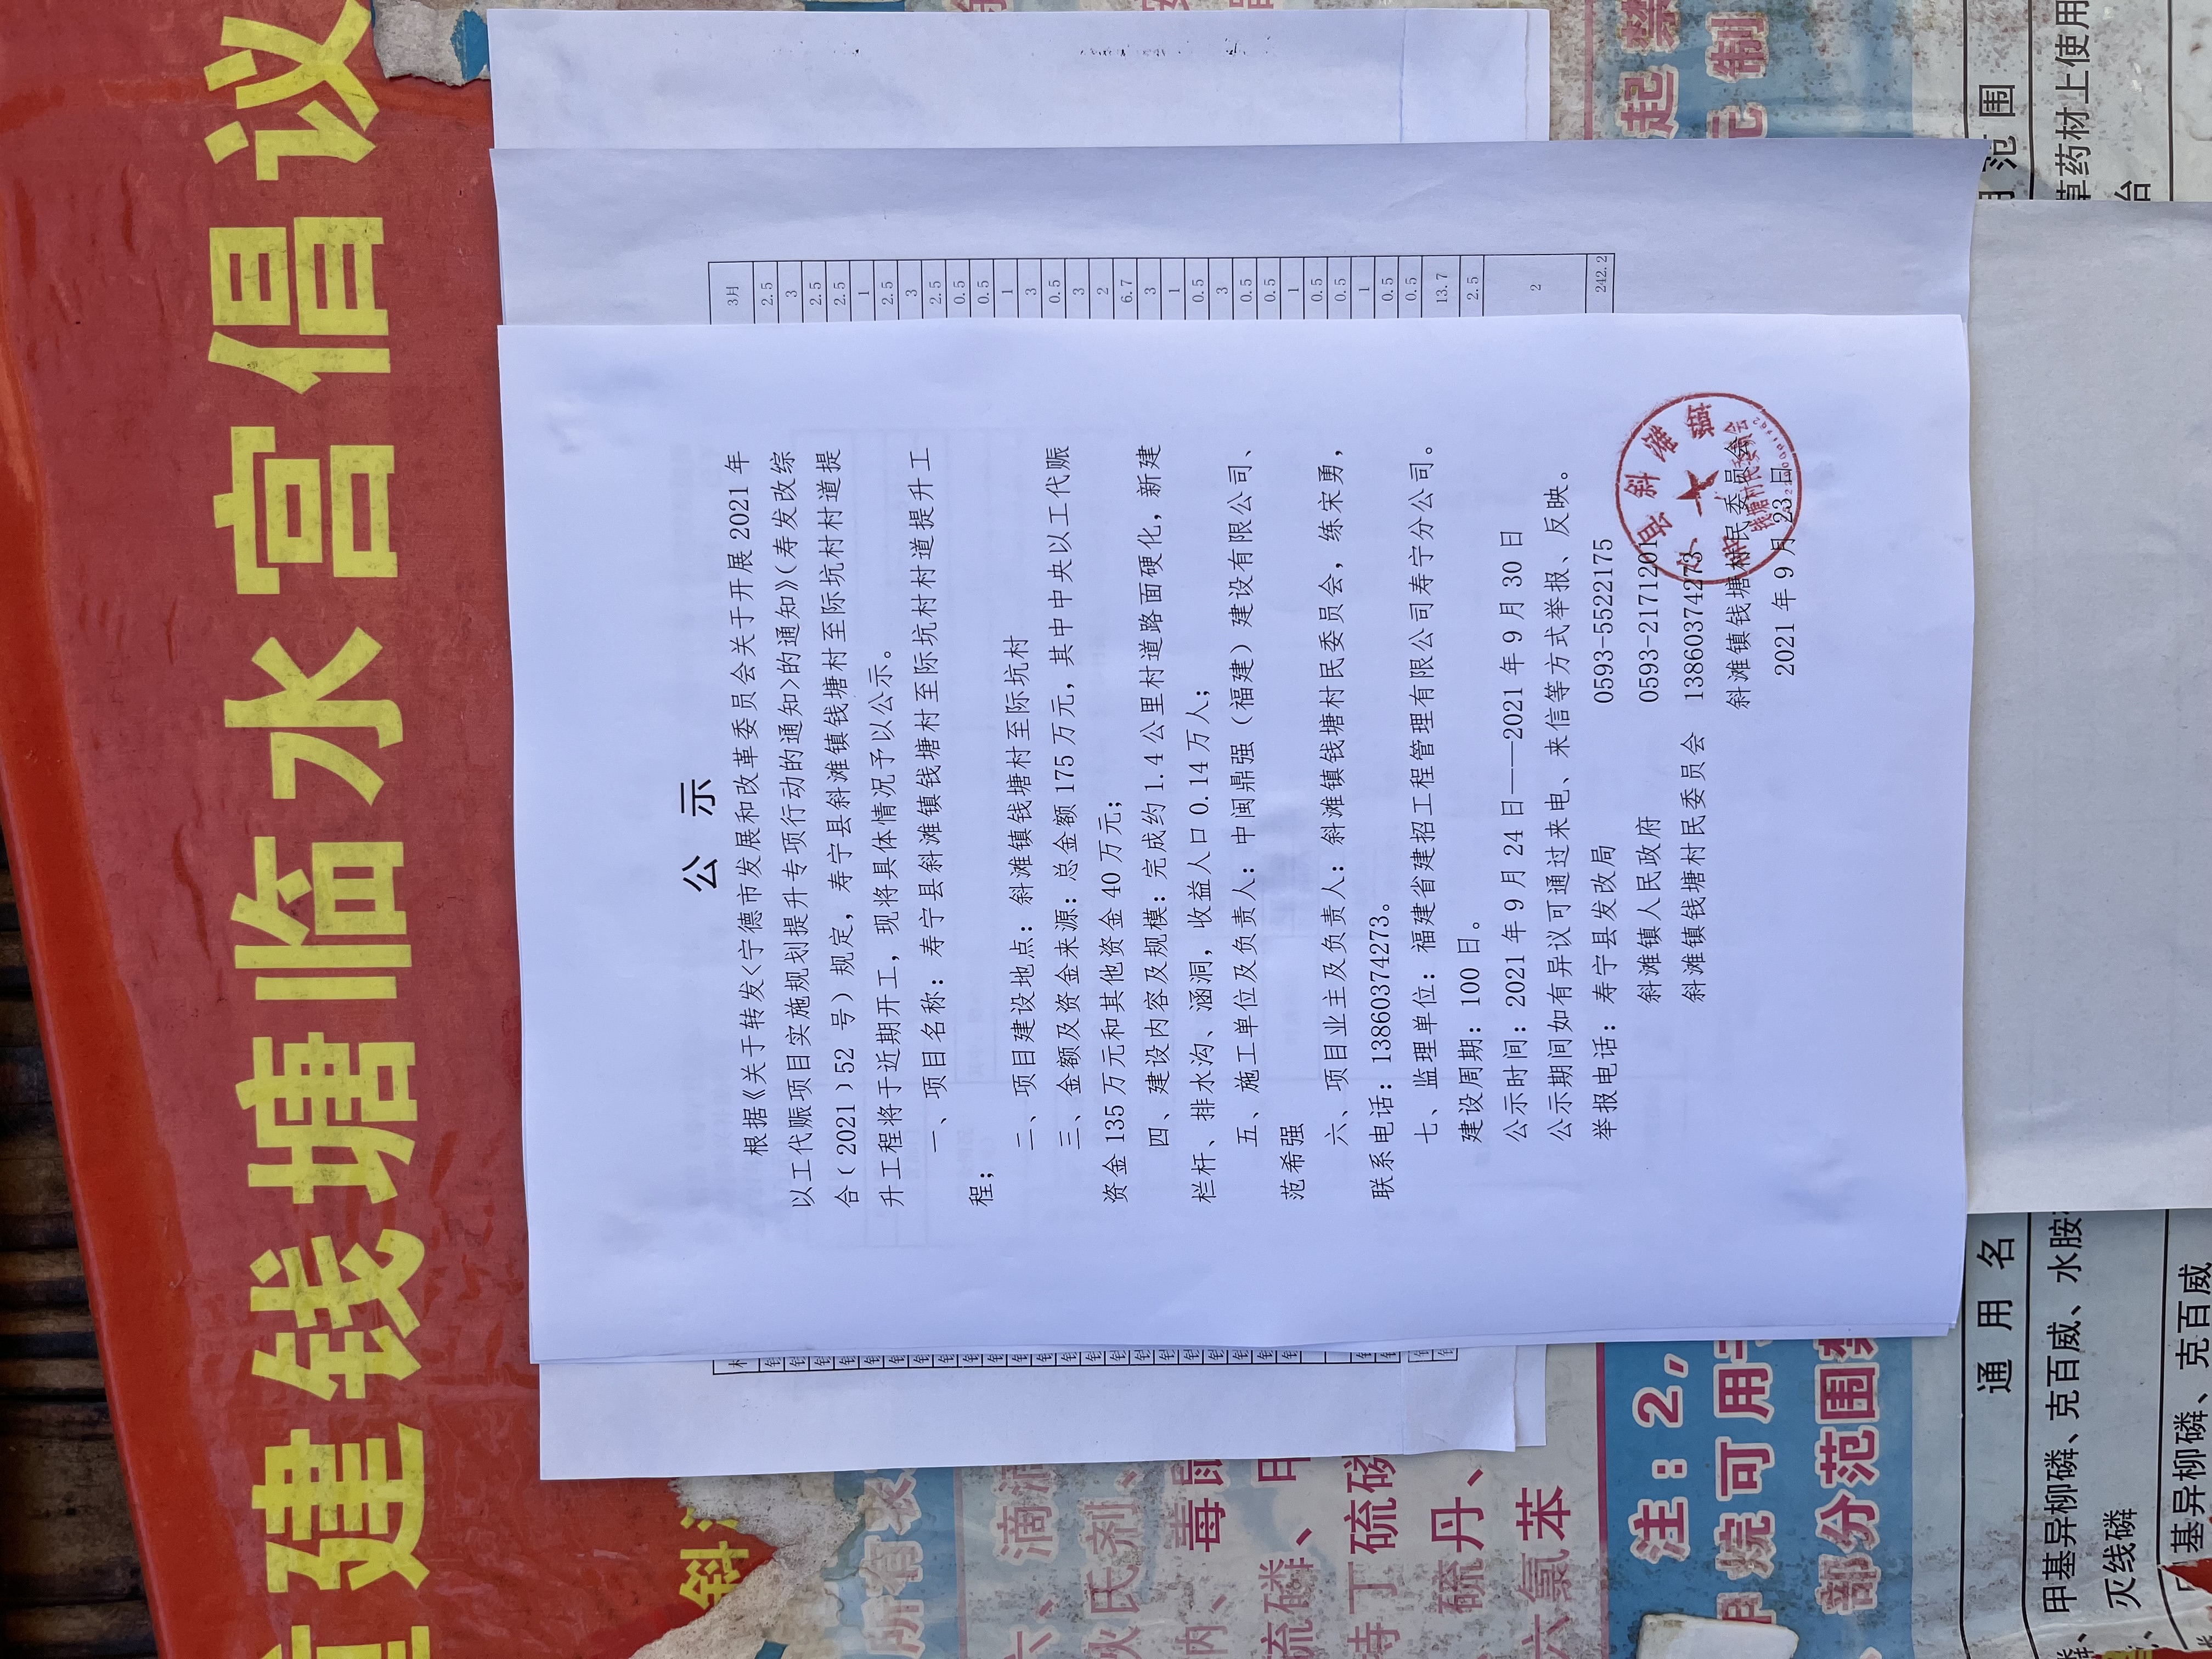 重建钱塘临水宫倡议
公 示
根据《关于转发<宁德市发展和改革委员会关于开展 2021 年
以工代赈项目实施规划提升专项行动的通知>的通知》（寿发改综
合（2021）52 号）规定，寿宁县斜滩镇钱塘村至际坑村村道提
升工程将于近期开工，现将具体情况予以公示。
一、项目名称：寿宁县斜滩镇钱塘村至际坑村村道提升工
程；
二、项目建设地点：斜滩镇钱塘村至际坑村
三、金额及资金来源：总金额 175 万元，其中中央以工代赈
资金 135 万元和其他资金 40 万元；
四、建设内容及规模：完成约 1.4 公里村道路面硬化，新建
栏杆、排水沟、涵洞，收益人口 0.14 万人；
五、施工单位及负责人：中闽鼎强（福建）建设有限公司、
范希强
六、项目业主及负责人：斜滩镇钱塘村民委员会，练宋勇，
联系电话：13860374273。
七、监理单位：福建省建招工程管理有限公司寿宁分公司。
建设周期：100 日。
公示时间：2021 年 9 月 24 日——2021 年 9 月 30 日
公示期间如有异议可通过来电、来信等方式举报、反映。
举报电话：寿宁县发改局 0593-5522175
斜滩镇人民政府 0593-2171201
斜滩镇钱塘村民委员会 13860374273
斜滩镇钱塘村民委员会
2021 年 9 月 23 日
3月
2.5
3
2.5
2.5
1
2.5
3
2.5
0.5
0.5
1
3
0.5
3
2
6.7
3
1
0.5
3
0.5
0.5
1
0.5
0.5
1
0.5
0.5
13.7
2.5
2
242.2
斜
所有农
六、滴滴
毒鼠
硫丹、
六氯苯
注：2,
部分范围禁
起 禁
元 制
通 用 名
甲基异柳磷、克百威、水胺
灭线磷
基异柳磷、克百威
用 范 围
草药材上使用